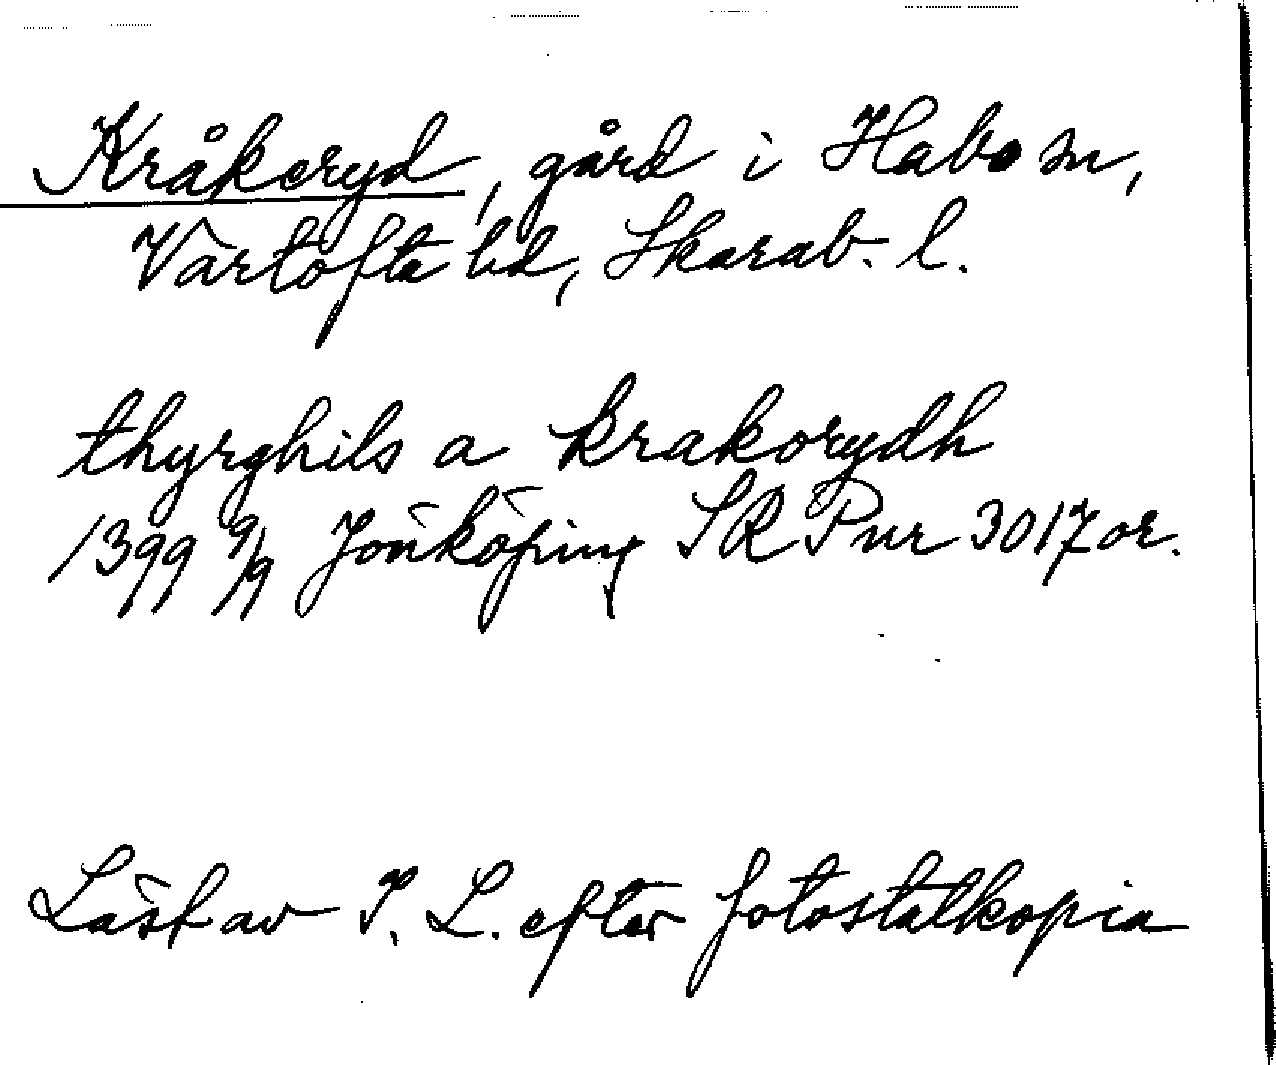 Kråkeryd, gård i Habo sn,
Vartofta hd, Skarab. l.
thyrghils a krakorydh
1399 9/9 Jönköping SRPnr 3017 or.
Läst av I. L. efter fotostatkopia